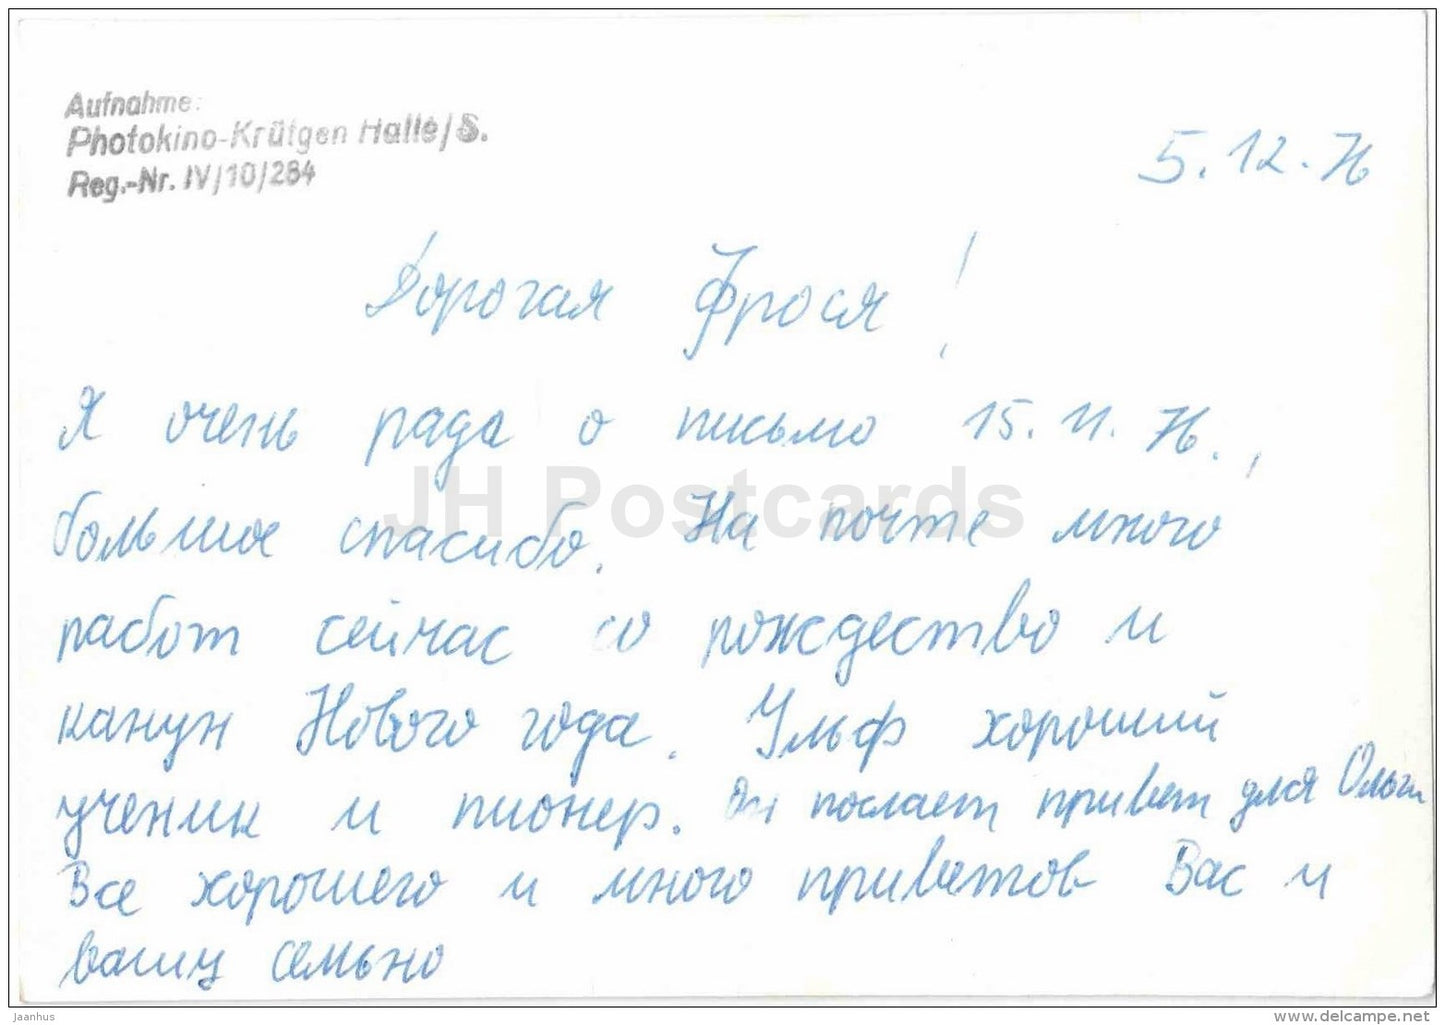 Aufnahme:
Photokino-Krütgen Halle/S.
Reg.-Nr. IV/10/284
5.12.76
Дорогая Фрося!
Я очень рада о письмо 15.11.76.,
большое спасибо. На почте много
работ сейчас со рождество и
канун Нового года. Ульф хороший
ученик и пионер. Он послает привет для Ольги
Все хорошего и много приветов Вас и
вашу семьно
JH Postcards
Jaanhus
www.delcampe.net